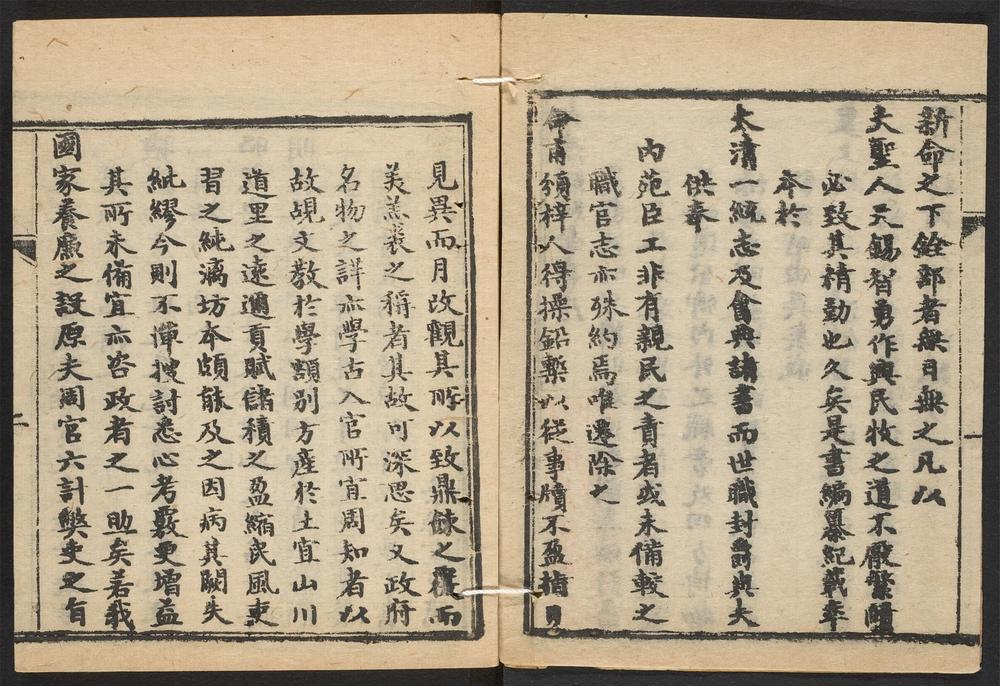 新命之下銓部者無日無之凡以
大聖人天錫智勇作興民牧之道不厭繁賾
必致其精勤也久矣是書編纂紀載率
本於
大清一統志及會典諸書而世職封爵與夫
供奉
內苑臣工非有親民之責者或未備較之
職官志亦殊約焉唯遷除之
命甫頒梓人得操鉛槧以從事牘不盈指
見異而月改觀其所以致鼎餗之覆而
美羔裘之稱者其故可深思矣又政府
名物之詳亦學古入官所宜周知者以
故覘文教於學額別方產於土宜山川
道里之遠邇貢賦儲積之盈縮民風吏
習之純漓坊本頗能及之因病其闕失
紕繆今則不憚搜討悉心考覈更增益
其所未備宜亦咨政者之一助矣若我
國家養廉之設原夫周官六計弊吏之旨
二